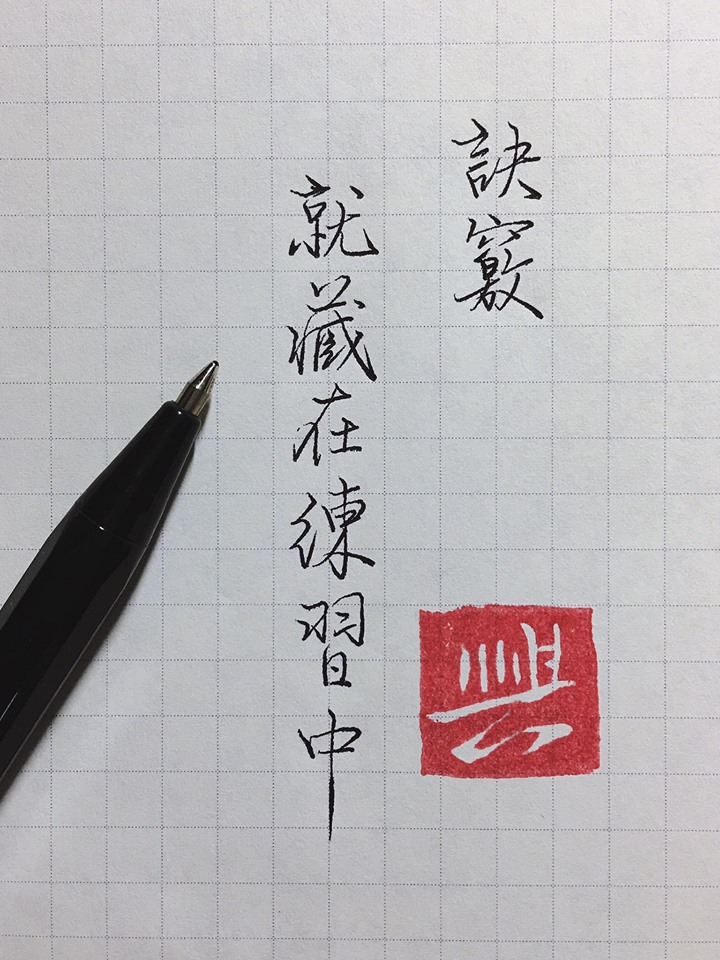 訣竅
就藏在練習中